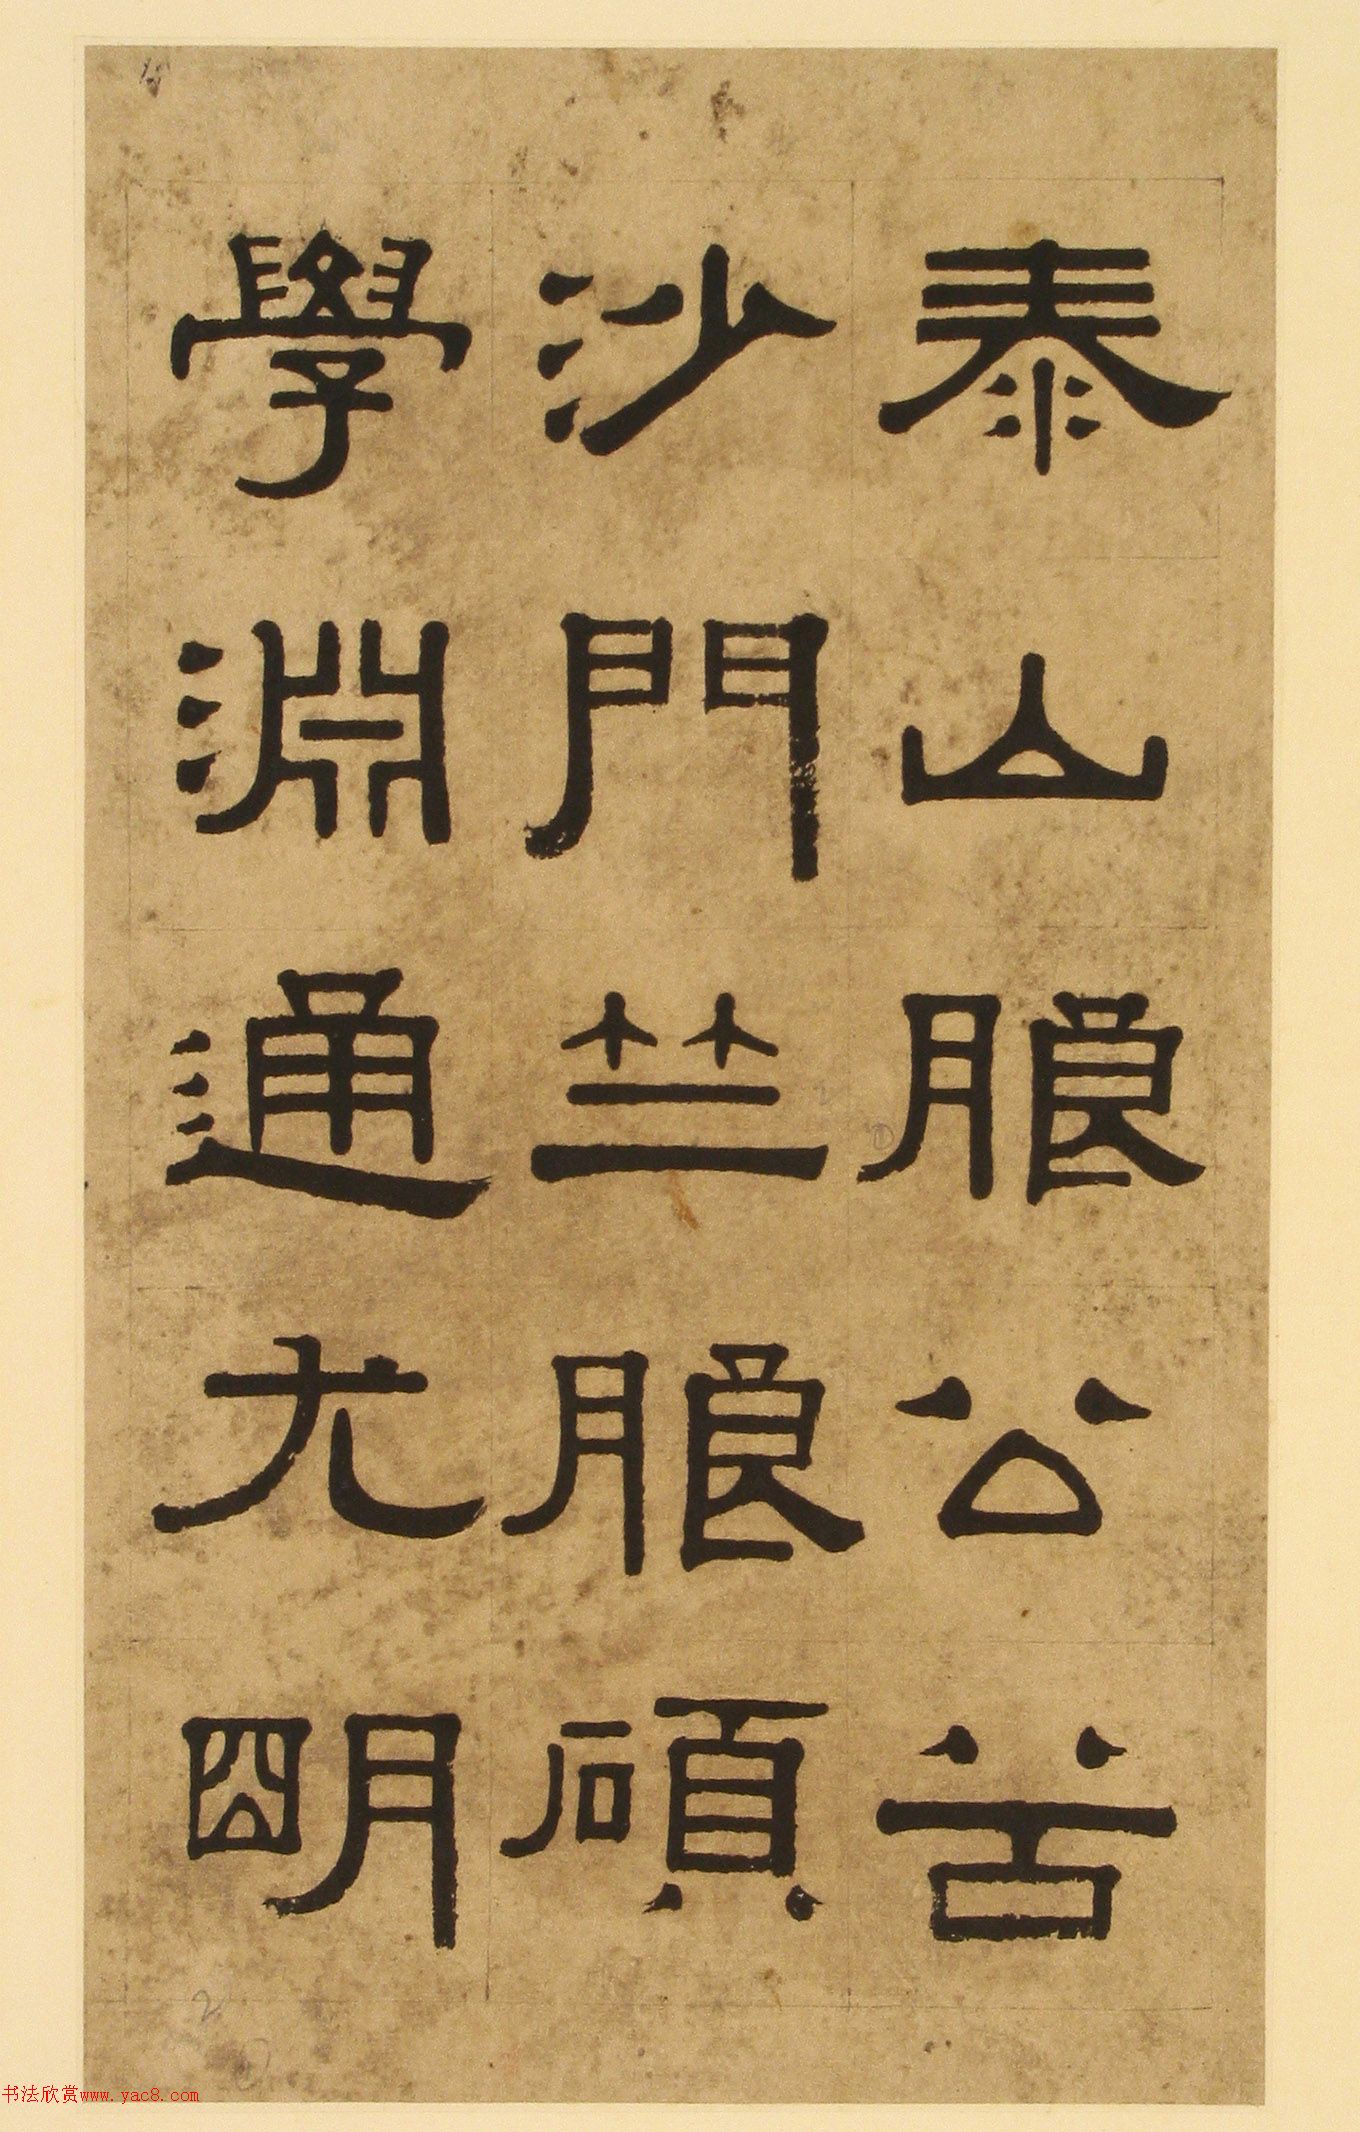 泰山朖公谷
沙門竺朖碩
學淵通尤朙
书法欣赏www.yac8.com